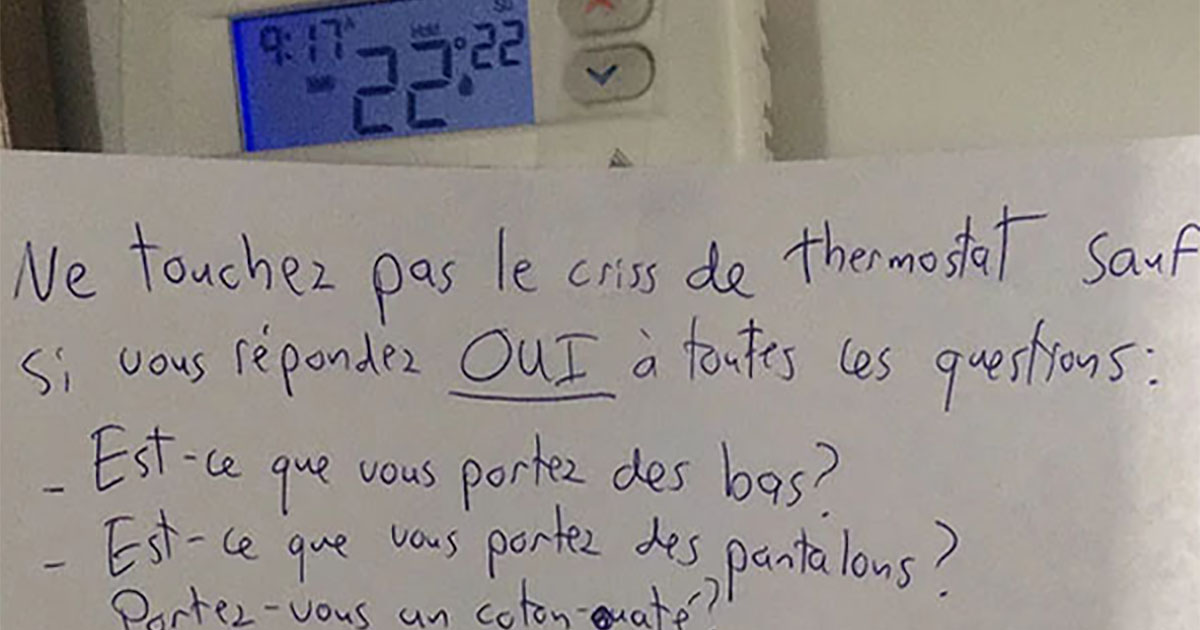 9:17 A Hold 22° 22 Su
Ne touchez pas le criss de thermostat sauf
si vous répondez OUI à toutes ces questions:
- Est-ce que vous portez des bas?
- Est-ce que vous portez des pantalons?
Portez-vous un coton-ouaté?